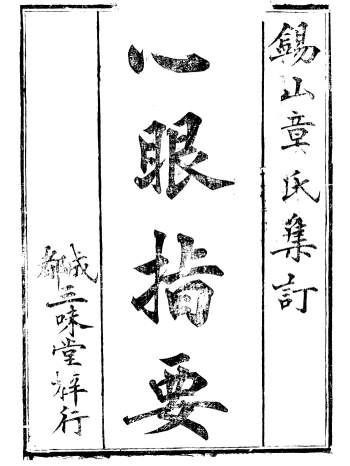 錫山章氏集訂
心眼指要
三味堂梓行